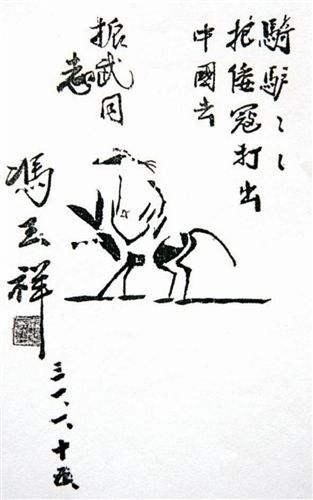 騎馿〻〻
把倭寇打出
中國去
振武同
志
馮玉祥
三一、一、十